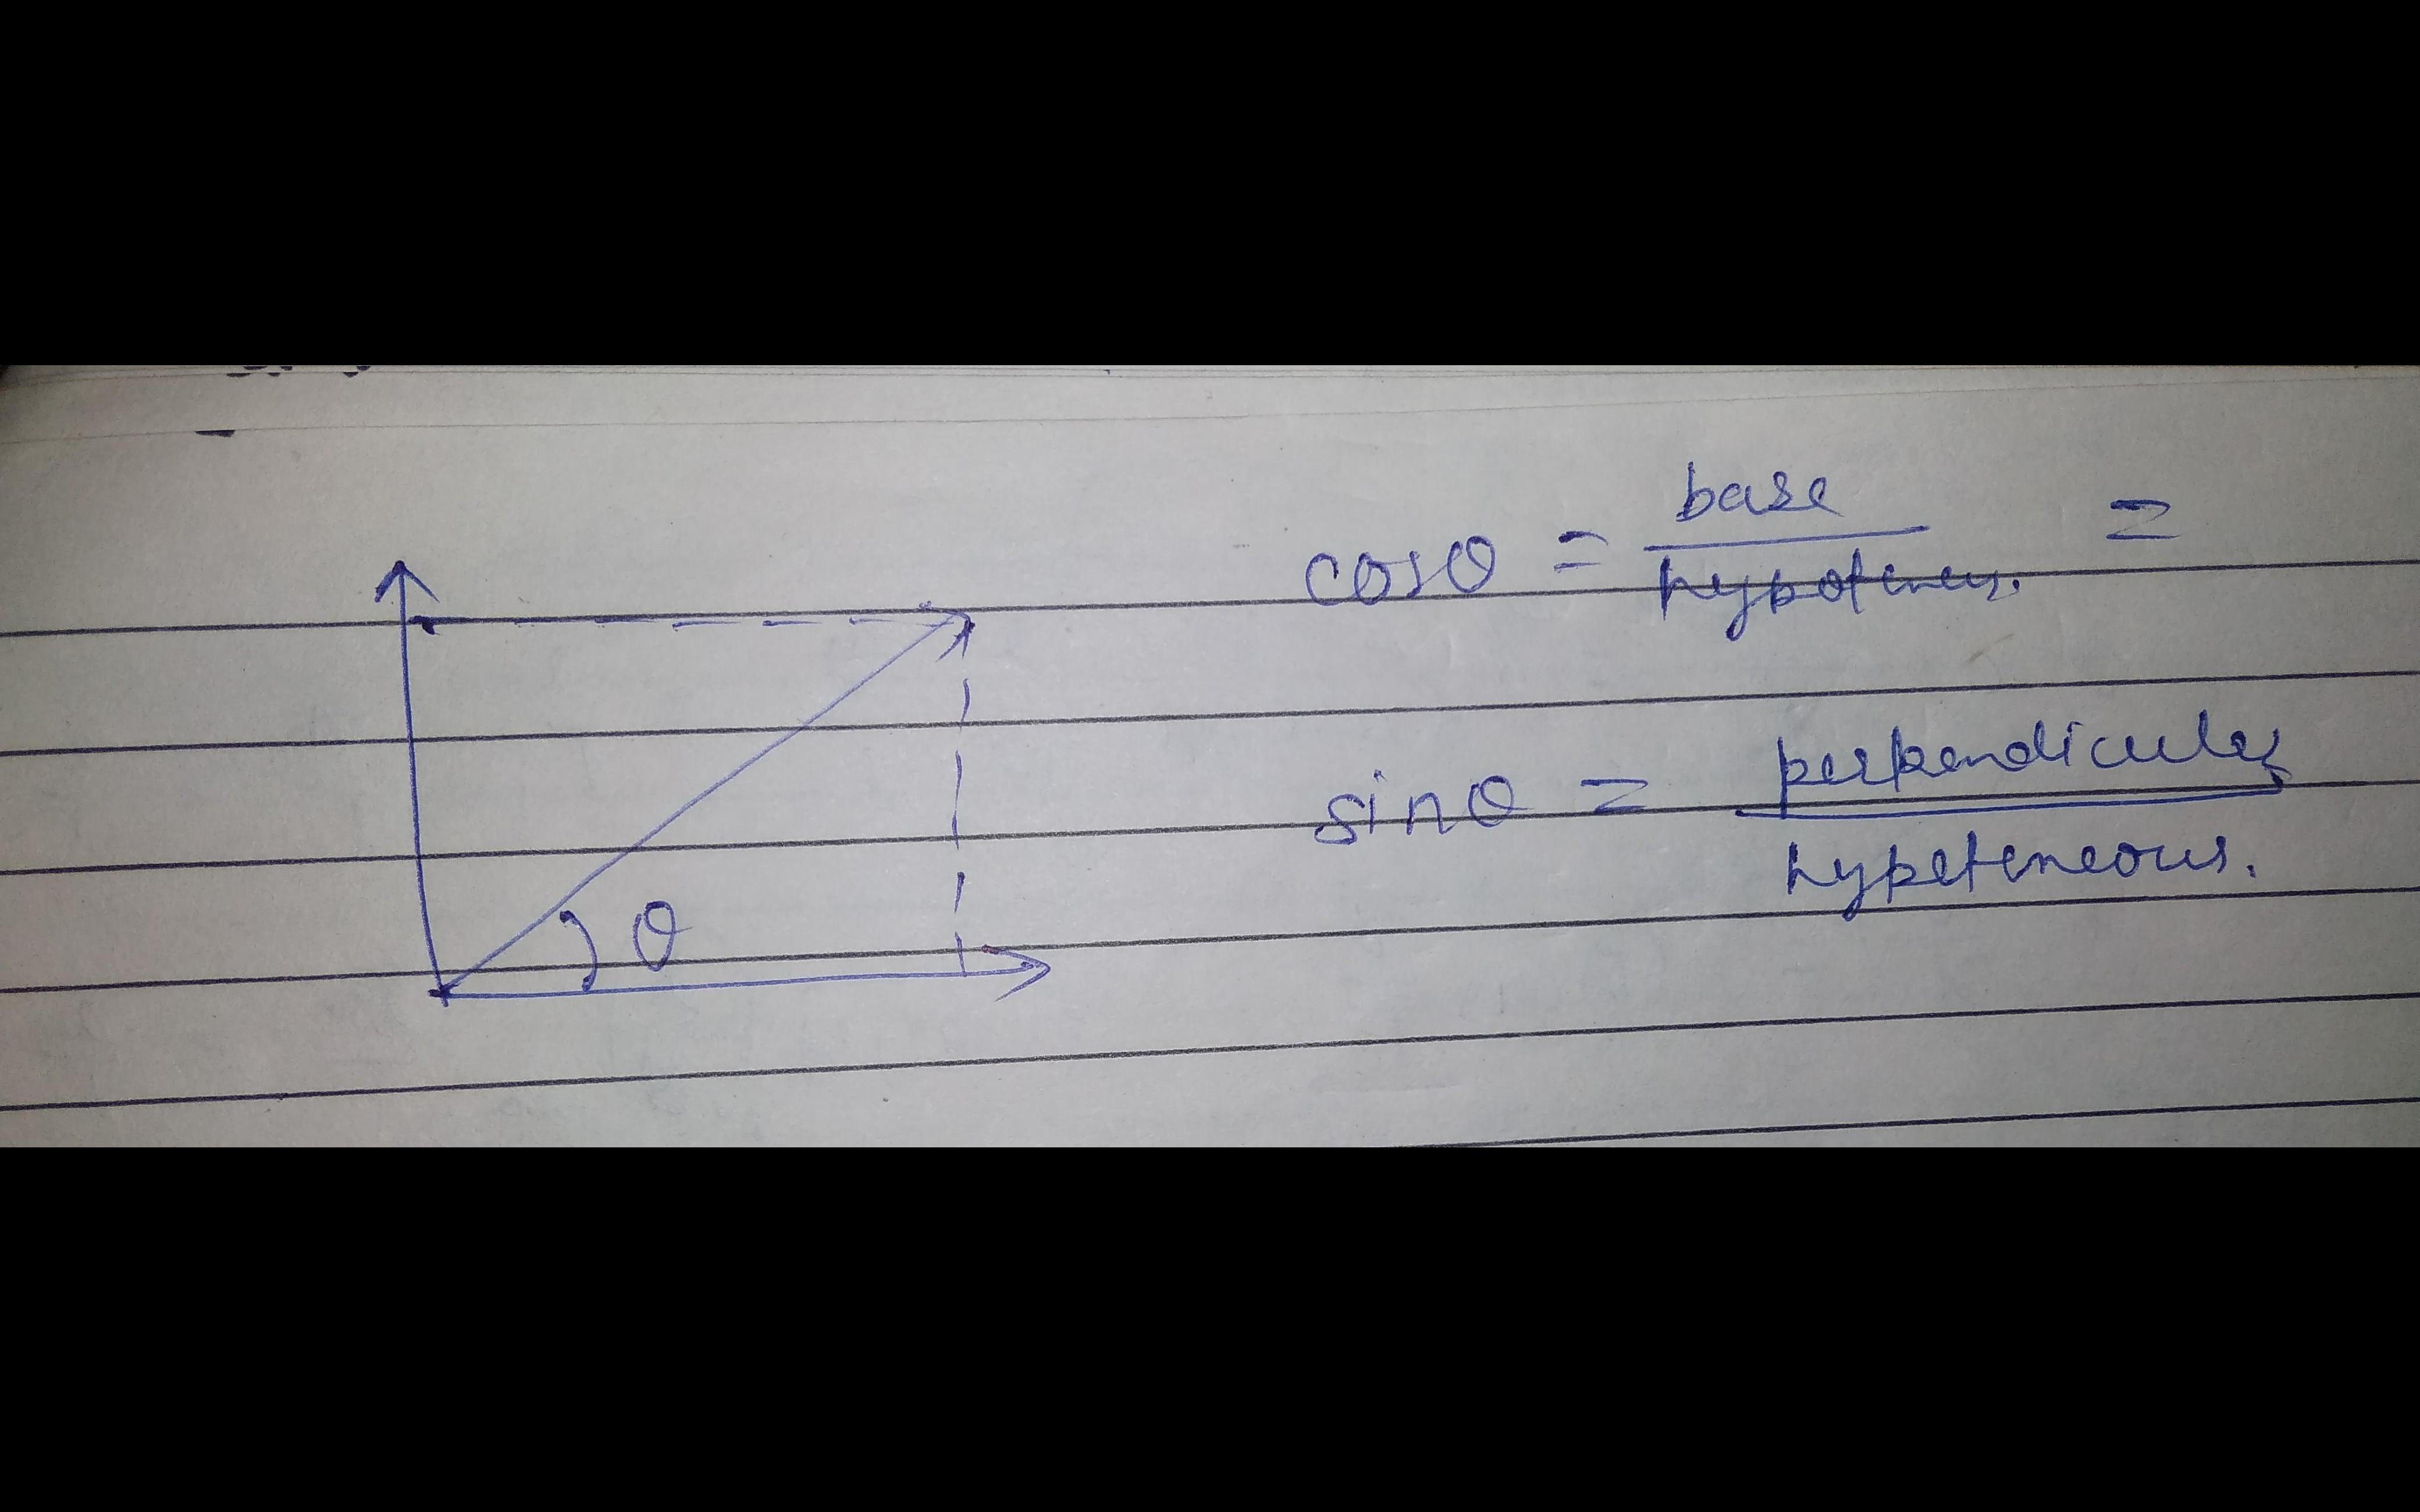 cosθ = base =
hypoteneus.
sinθ = perpendicular
hypeteneous.
θ